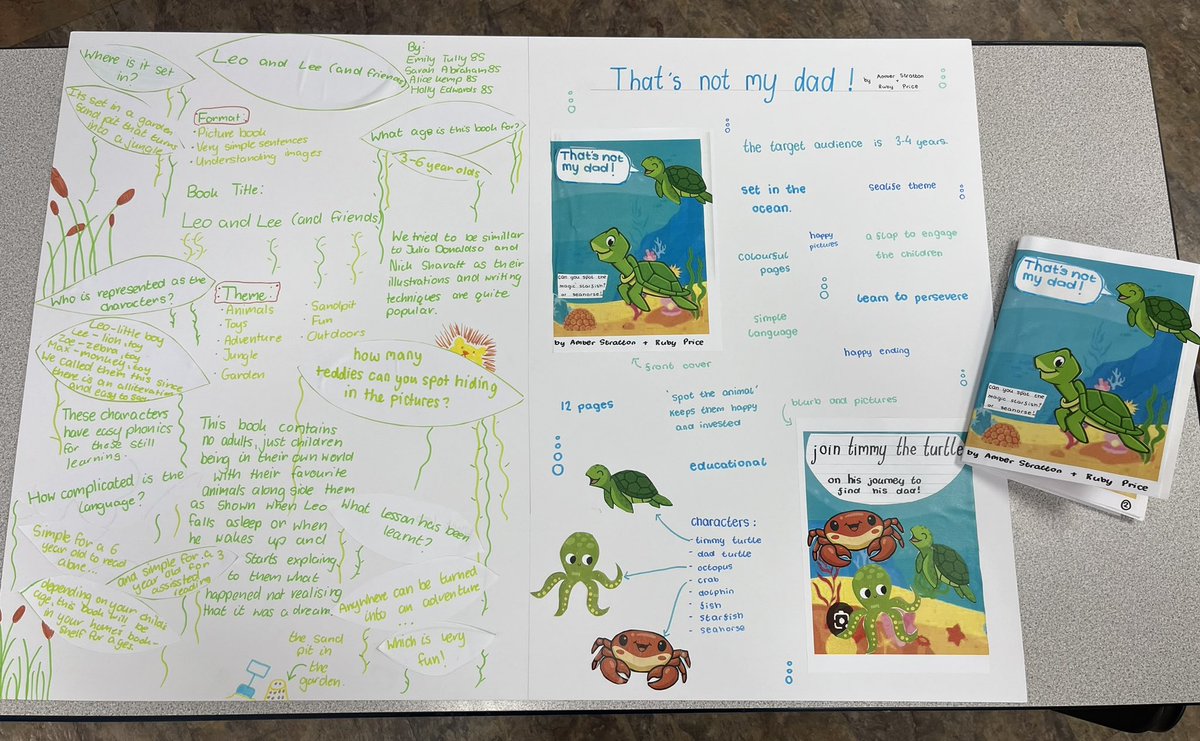 Leo and Lee (and friends)
By:
Emily Tully 8S
Sarah Abraham 8S
Alice Kemp 8S
Holly Edwards 8S
Where is it set
in?
Its set in a garden
Sand pit that turns
into a jungle
Format:
· Picture book
· Very simple sentences
· Understanding images
What age is this book for?
3-6 year olds
Book Title:
Leo and Lee (and friends)
We tried to be simillar
to Julia Donaldso and
Nick Sharatt as their
illustrations and writing
techniques are quite
popular.
Who is represented as the
characters?
Leo - little boy
Lee - lion toy
Zoe - zebra toy
Max - monkey toy
We called them this since
there is an alliteration
and easy to say
Theme:
· Animals
· Toys
· Adventure
· Jungle
· Garden
· Sandpit
· Fun
· Outdoors
how many
teddies can you spot hiding
in the pictures?
These characters
have easy phonics
for those still
learning.
This book contains
no adults, just children
being in their own world
with their favourite
animals along side them
as shown when Leo
falls asleep or when
he wakes up and
Starts explaing
to them what
happened not realising
that it was a dream.
How complicated is the
language?
Simple for a 6
year old to read
alone...
and simple for a 3
year old for
assissted
reading
depending on your childs
age, this book will be
in your homes book-
shelf for ages.
What lesson has been
learnt?
Anywhere can be turned
into ... an adventure
Which is very
fun!
the sand
pit in
the
garden.
That's not my dad!
by Amber Stratton
+
Ruby Price
That's not
my dad!
can you spot the
magic starfish?
or seahorse!
by Amber Stratton + Ruby Price
front cover
the target audience is 3-4 years.
set in the
ocean.
sealife theme
happy
pictures
a flap to engage
the children
colourful
pages
learn to persevere
simple
language
happy ending
12 pages
'spot the animal'
keeps them happy
and invested
blurb and pictures
educational
characters:
- timmy turtle
- dad turtle
- octopus
- crab
- dolphin
- fish
- starfish
- seahorse
join timmy the turtle
on his journey to
find his dad!
That's not
my dad!
can you spot the
magic starfish?
or seahorse!
by Amber Stratton + Ruby Price
2